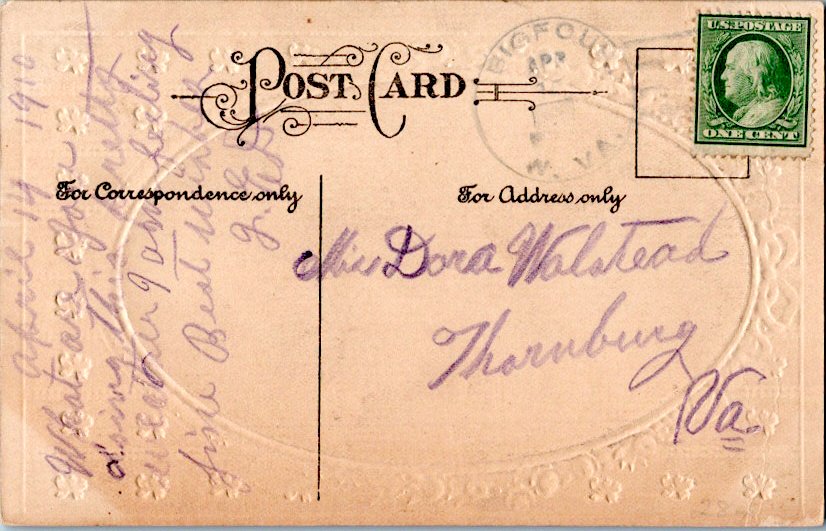 POST CARD
BIGFOUR
APR
W. VA.
U.S. POSTAGE
ONE CENT
For Correspondence only
For Address only
April 14 1910
What are you
doing this pretty
weather I am feeling
fine Best wishes
Miss Dora Walstead
Thornburg
Va